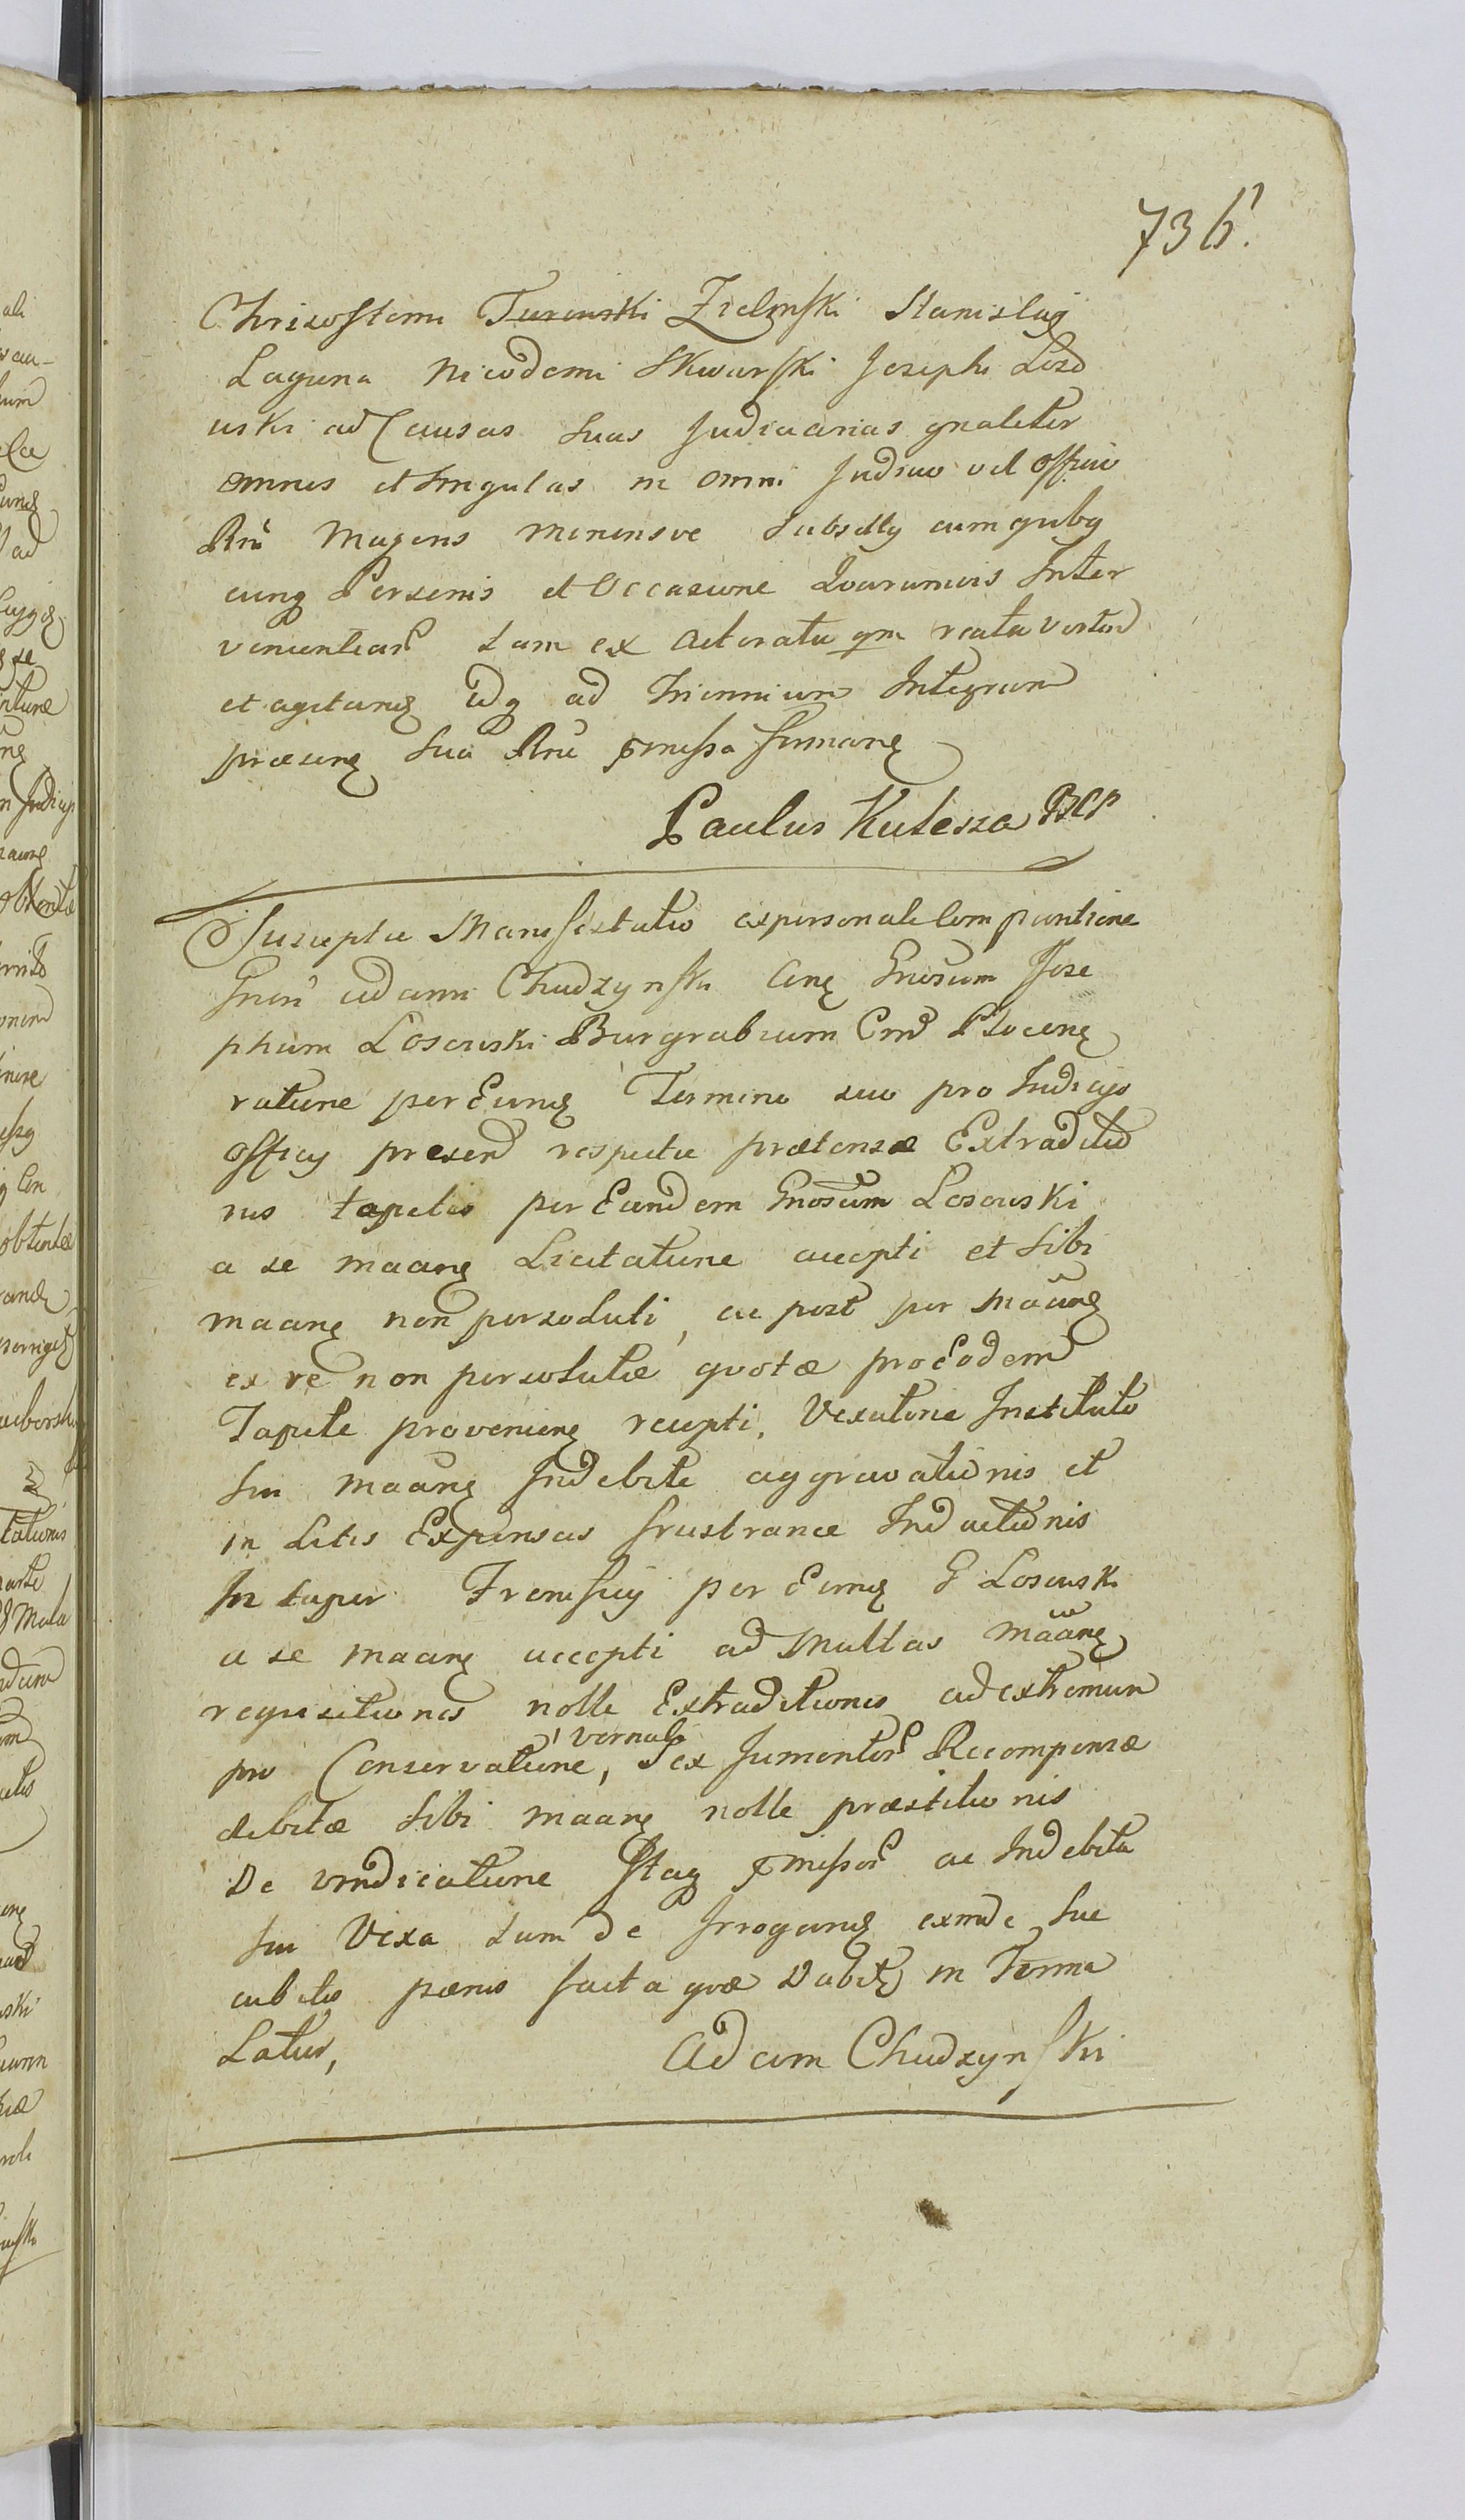 736.
Chrisostomi Turowski Zielynski Stanislai
Laguna Nicodemi Skwarski Josephi Loso
wski ad Causas suas Judiciarias gnaliter
omnes et singulas in omni Judicio vel Officio
Rni Majoris Minorisve Subselly cum quibq
cunq Personis et Occasione Quarumvis Inter
venientiar tam ex Actoratu qm reatu verten
et agitang idq ad Triennium Integrum
præseng sua Rne pmissa firmang
Paulus Kulesza BCP
Suscepta Manifestatio ex personali Comparitione
Gnsi Adami Chudzynski Cing Gnosum Jose
phum Losowski Burgrabium Cm Ploceng
ratione per Eung Termino suo pro Indicijs
officij presen respectu prætensæ Extraditio
nis tapetis per Eundem Gnosum Losowski
a se maang Licitatione accepti et sibi
maang non persoluti, ac post per Maang
ex re non persolutæ quotæ pro Eodem
Tapete provenieng recepti, Vexatorie Instituto
sui maang Indebite aggravationis et
in Litis Expensas frustraneæ Inductionis
In super per Eung G Losowsk
a se maang accepti ad Multas Maang
requisitiones nolle Extraditionis ad extremum
pro Conservatione, vernali Sex Jumentor Recompensæ
debitæ sibi maang nolle præstitionis
De vindicatione Stag pmissor ac Indebita
sui Vexa tum de Irrogang exinde suc
cubitis pænis facta quæ Dabit in Terma
Latur,
Adam Chudzynski